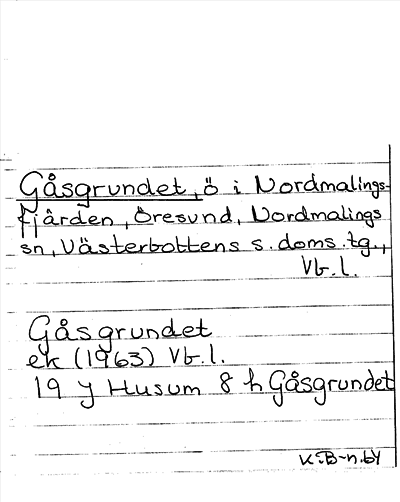 Gåsgrundet, ö i Nordmalings-
fjärden, Öresund, Nordmalings
sn, Västerbottens s. doms. tg.,
Vb. l.
Gåsgrundet
ek (1963) Vb. l.
19 J Husum 8 h Gåsgrundet
K.B-n.by